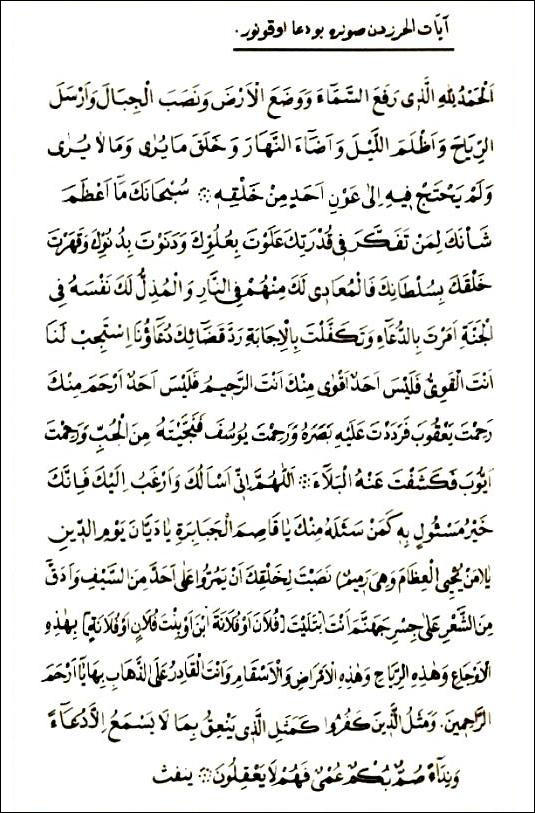 آيات الحرزدن صوڭره بو دعا اوقونور.
اَلْحَمْدُ لِلّٰهِ الَّذِى رَفَعَ السَّمَآءَ وَوَضَعَ الْاَرْضَ وَنَصَبَ الْجِبَالَ وَاَرْسَلَ
الرِّيَاحَ وَاَظْلَمَ اللَّيْلَ وَاَضَآءَ النَّهَارَ وَخَلَقَ مَا يُرٰى وَمَا لَا يُرٰى
وَلَمْ يَحْتَجْ فِيهِ اِلٰى عَوْنِ اَحَدٍ مِنْ خَلْقِهِ ۞ سُبْحَانَكَ مَآ اَعْظَمَ
شَأْنَكَ لِمَنْ تَفَكَّرَ فِى قُدْرَتِكَ عَلَوْتَ بِعُلُوِّكَ وَدَنَوْتَ بِدُنُوِّكَ وَقَهَرْتَ
خَلْقَكَ بِسُلْطَانِكَ فَالْمُعَادِى لَكَ مِنْهُمْ فِى النَّارِ وَالْمُذِلُّ لَكَ نَفْسَهُ فِى
الْجَنَّةِ اَمَرْتَ بِالدُّعَآءِ وَتَكَفَّلْتَ بِالْاِجَابَةِ رَدَّ قَضَائِكَ دُعَاؤُنَا اِسْتَجِبْ لَنَا
اَنْتَ الْقَوِىُّ فَلَيْسَ اَحَدٌ اَقْوٰى مِنْكَ اَنْتَ الرَّحِيمُ فَلَيْسَ اَحَدٌ اَرْحَمَ مِنْكَ
رَحِمْتَ يَعْقُوبَ فَرَدَدْتَ عَلَيْهِ بَصَرَهُ وَرَحِمْتَ يُوسُفَ فَنَجَّيْتَهُ مِنَ الْجُبِّ وَرَحِمْتَ
اَيُّوبَ فَكَشَفْتَ عَنْهُ الْبَلَآءَ ۞ اَللّٰهُمَّ اِنِّى اَسْاَلُكَ وَاَرْغَبُ اِلَيْكَ فَاِنَّكَ
خَيْرُ مَسْئُولٍ بِهِ كَمَنْ سَئَلَهُ مِنْكَ يَا قَاصِمَ الْجَبَابِرَةِ يَا دَيَّانَ يَوْمِ الدِّينِ
يَا مَنْ يُحْيِى الْعِظَامَ وَهِىَ رَمِيمٌ) نَصَبْتَ لِخَلْقِكَ اَنْ يَمُرُّوا عَلٰى اَحَدَّ مِنَ السَّيْفِ وَاَدَقَّ
مِنَ الشَّعْرِ عَلٰى جِسْرِ جَهَنَّمَ اَنْتَ ابْتَلَيْتَ [فُلَانَ اَوْ فُلَانَةَ ابْنَ اَوْ بِنْتَ فُلَانٍ اَوْ فُلَانَةٍ] بِهٰذِهِ
الْاَوْجَاعِ وَهٰذِهِ الرِّيَاحِ وَهٰذِهِ الْاَمْرَاضِ وَالْاَسْقَامِ وَاَنْتَ الْقَادِرُ عَلَى الذَّهَابِ بِهَا يَا اَرْحَمَ
الرَّاحِمِينَ. وَمَثَلُ الَّذِينَ كَفَرُوا كَمَثَلِ الَّذِى يَنْعِقُ بِمَا لَا يَسْمَعُ اِلَّا دُعَآءً
وَنِدَآءً صُمٌّ بُكْمٌ عُمْىٌ فَهُمْ لَا يَعْقِلُونَ ۞ ينفث